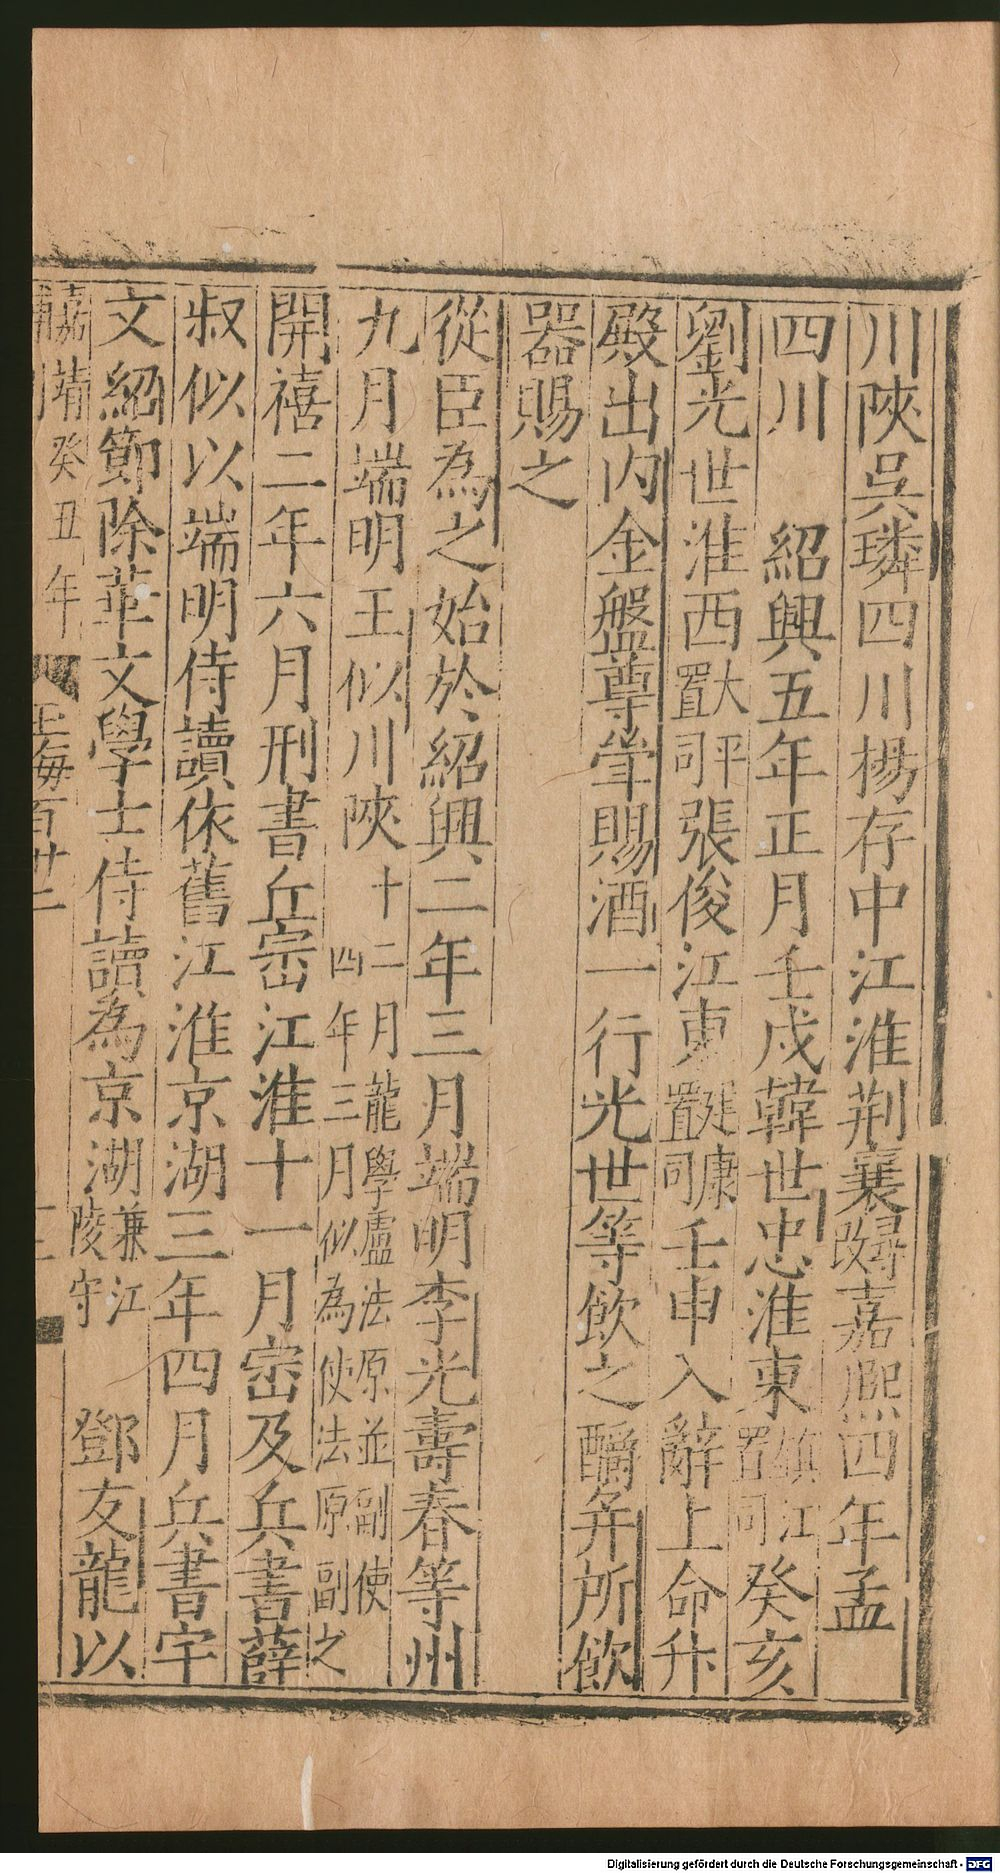 川陜吳璘四川楊存中江淮荆襄改㝷嘉熙四年孟
四川 紹興五年正月壬戌韓世忠淮東鎮江置司癸亥
劉光世淮西太平置司張俊江東建康置司壬申入辭上命升
殿出内金盤尊斝賜酒一行光世等飲之酹并所飲
器賜之
從臣為之始於紹興二年三月端明李光壽春等州
九月端明王似川陜十二月龍學盧法原並副使四年三月似為使法原副之
開禧二年六月刑書丘崈江淮十一月崈及兵書薛
叔似以端明侍讀依舊江淮京湖三年四月兵書宇
文紹節除華文學士侍讀為京湖兼江陵守 鄧友龍以
嘉靖癸丑年
玉海百卅二
Digitalisierung gefördert durch die Deutsche Forschungsgemeinschaft - DFG